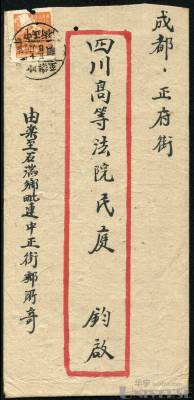 成都·正府街
四川高等法院民庭 鈞啟
由樂至石湍鄉毗連中正街郵所寄
華宇